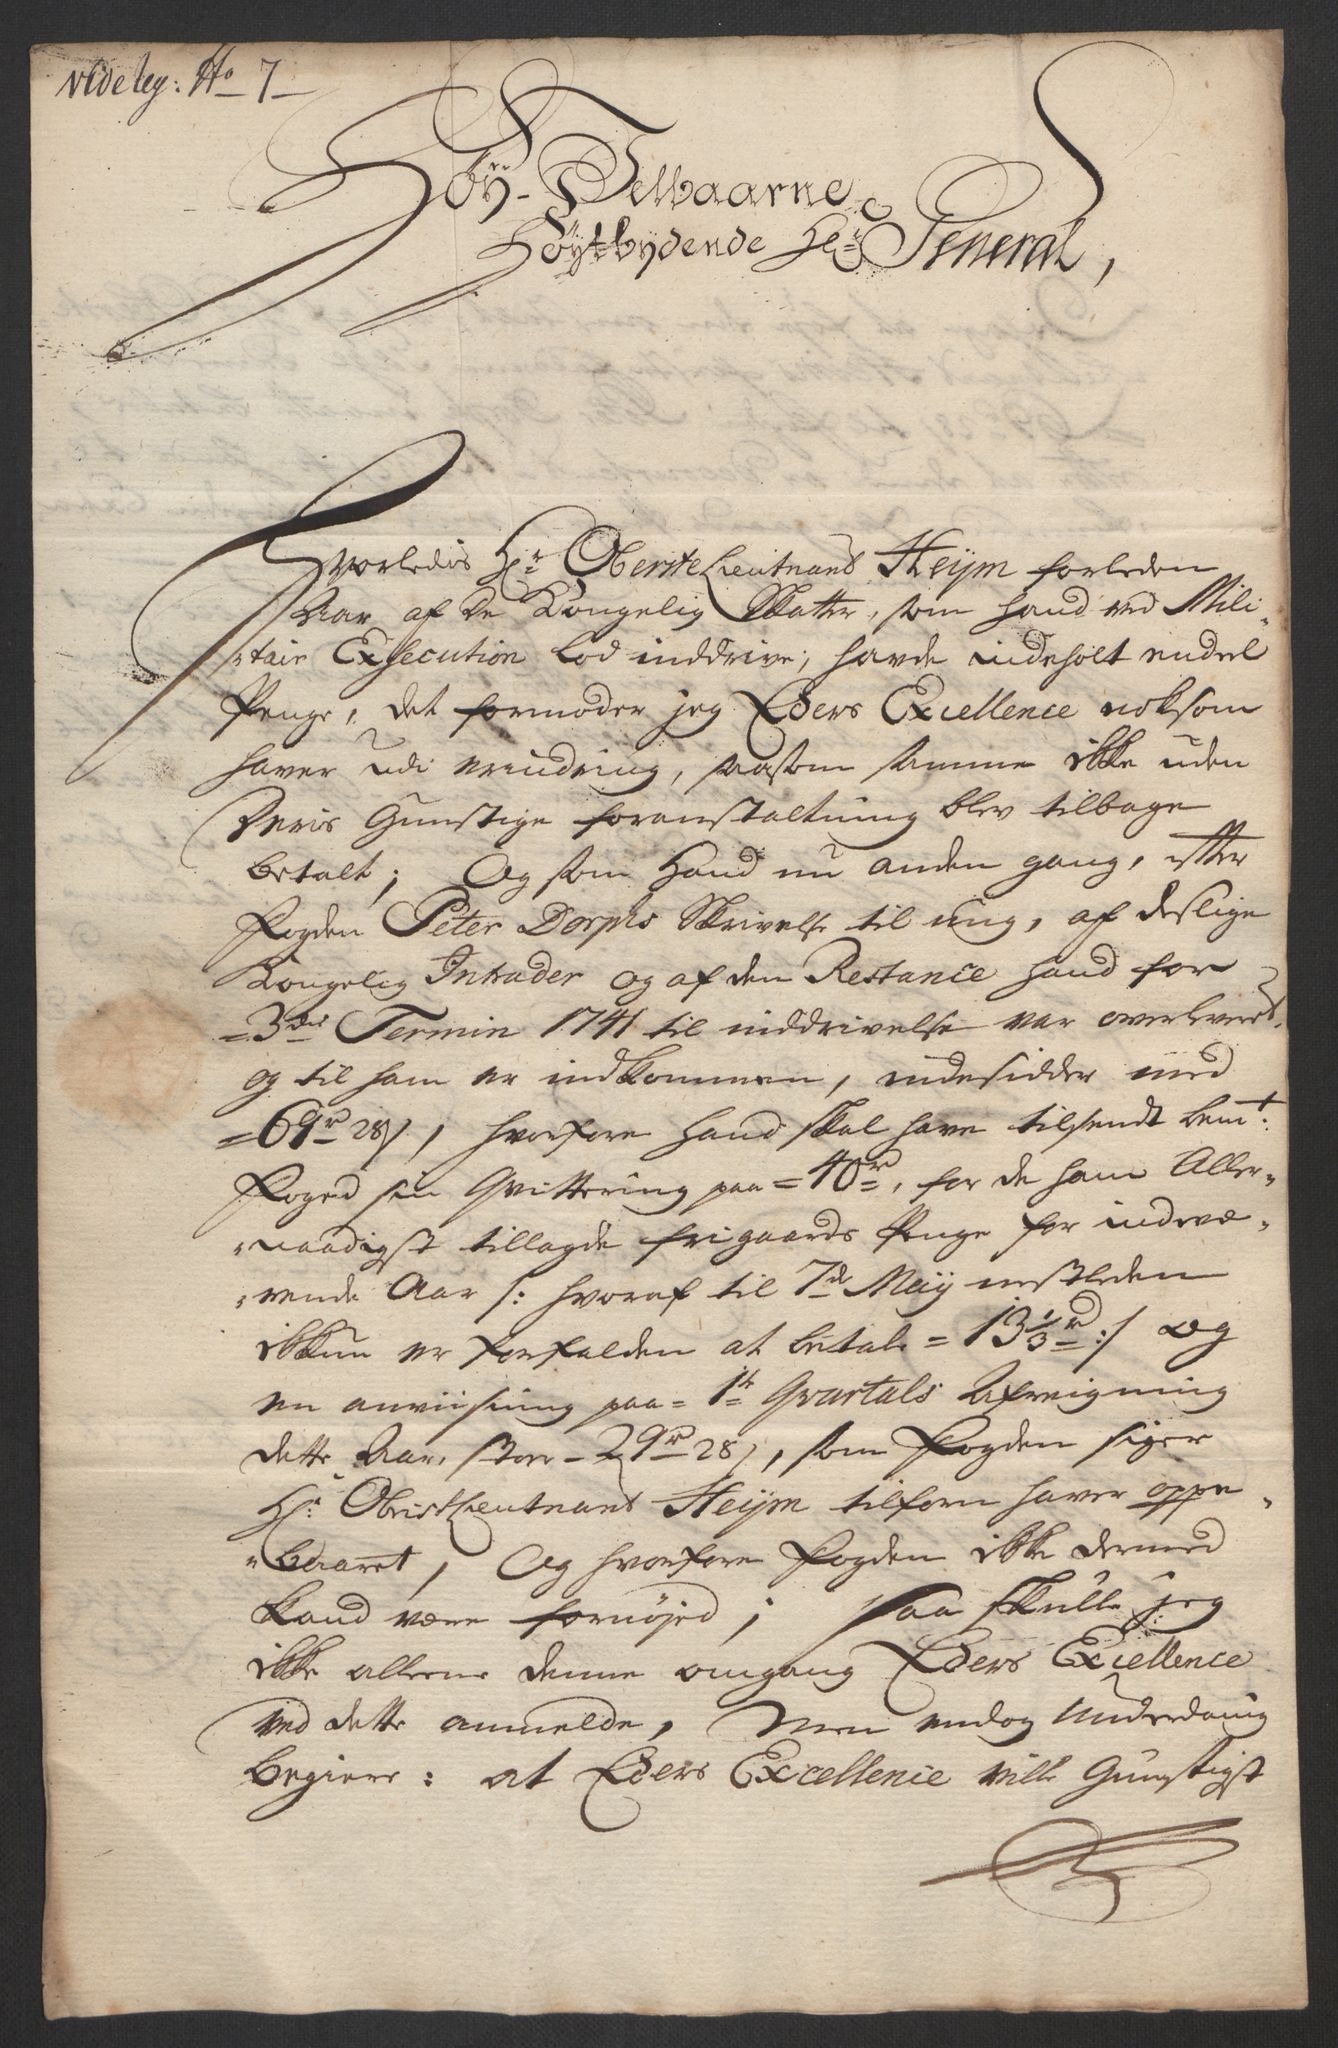 Videbg: No 7
Høy-Velbaarne
Høytbydende Hr General,
Hvorledis Hr Oberste Lieutnant Heijm forleden
Aar af de Kongelig Skatter, som hand ved Mili-
-tair Execution lod inddrive, havde indeholt endeel
Penge, det formoder jeg Eders Excellence noksom
haver udi erindring, saasom samme ikke uden
Deris Gunstige foranstaltning blev tilbage
betalt; Og som Hand nu anden gang, efter
Fogden Peter Dorphs Skrivelse til mig, af deslige
Kongelig Intrader og af den Restance hand for
=3die Termin 1741 til inddrivelse var overleveret,
og til ham er indkommen, indesidder med
=69 rd 28 s, hvorfore hand skal have tilsendt bemt:
Foged sin Qvittering paa =40 rd=, for de ham Aller-
-naadigst tillagde frigaards Penge for indevæ-
-rende Aar /: hvoraf til 7de Maij nestleden
ikkun er forfalden at betale = 13 1/3 rd :/ og
en anviisning paa = 1te Qvartals Afreigning
dette Aar, stor - 29 rd 28 s, som Fogden siger
Hr Obristlieutnant Heijm tilforn haver oppe-
-baaret, Og hvorfore Fogden ikke dermed
kand være fornøjed; saa skulle jeg
ikke alleene denne omgang Eders Excellence
ved dette anmelde, Men endog Underdanig
begiere: at Eders Excellence ville Gunstigst